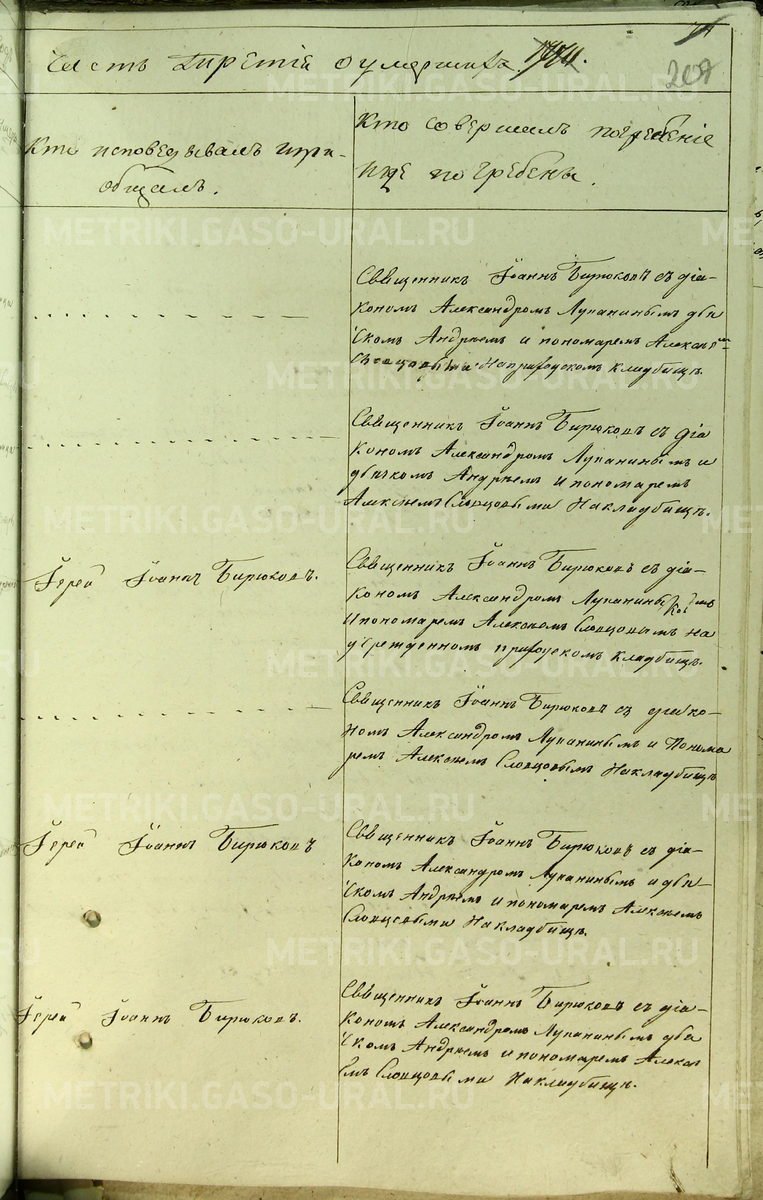 Часть третiя о умершихъ.
207
Кто исповедывалъ и при-
общалъ.
Кто совершалъ погребенiе
и где погребены.
Священникъ Iоаннъ Бирюковъ съ дiа-
кономъ Александромъ Лупанинымъ дья
чкомъ Андреемъ и пономаремъ Алексее-
Словцовыми На приходскомъ кладбище.
Священникъ Iоаннъ Бирюковъ съ дiа
кономъ Александромъ Лупанинымъ и
дьячкомъ Андреемъ и пономаремъ
Алексеемъ Словцовыми На кладбище.
Iерей Iоаннъ Бирюковъ.
Священникъ Iоаннъ Бирюковъ съ дiа-
кономъ Александромъ Лупанинымъ
И пономаремъ Алексеемъ Словцовымъ на
учрежденномъ приходскомъ кладбище.
Священникъ Iоаннъ Бирюковъ съ дiако-
номъ Александромъ Лупанинымъ и Понома
ремъ Алексеемъ Словцовымъ На кладбище
Iерей Iоаннъ Бирюковъ
Священникъ Iоаннъ Бирюковъ съ дiа-
кономъ Александромъ Лупанинымъ и дья-
чкомъ Андреемъ и пономаремъ Алексеемъ
Словцовыми На кладбище.
Iерей Iоаннъ Бирюковъ.
Священникъ Iоаннъ Бирюковъ съ дiа-
кономъ Александромъ Лупанинымъ дья
чкомъ Андреемъ и пономаремъ Алексе
емъ Словцовыми На кладбище.
METRIKI.GASO-URAL.RU